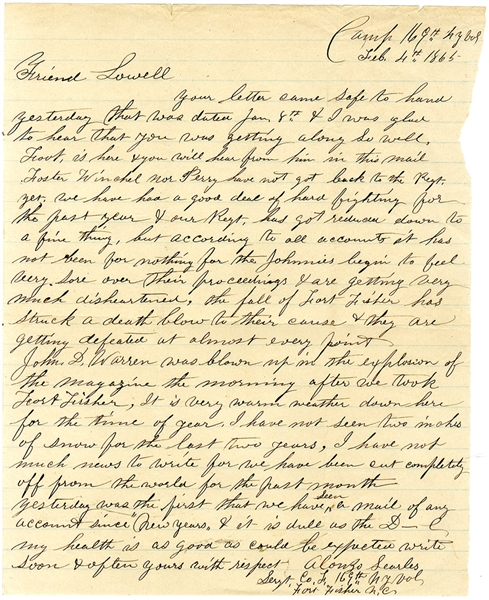 Camp 169th N Y Vol
Feb 4th 1865
Friend Lowell
your letter came safe to hand
yesterday that was dated Jan 8th & I was glad
to hear that you was getting along so well,
Foot, as here & you will hear from him in this mail
Foster Winchel nor Perry have not got back to the Regt.
yet, we have has a good deal of hard fighting for
the past year & our Regt, has got reduced down to
a fine thing, but according to all accounts it has
not been for nothing for the Johnnies begin to feel
very sore over their proceedings & are getting very
much disheartened, the fall of Fort Fisher has
struck a death blow to their cause & they are
getting defeated at almost every point
John D. Warren was blown up in the explosion of
the magazine the morning after we took
Fort Fisher, It is very warm weather down here
for the time of year. I have not seen two inches
of snow for the last two years, I have not
much news to write for we have been cut completely
off from the world for the past month
yesterday was the first that we have seen a mail of any
account since New years, & it is dull as the D—l
my health is as good as could be expected write
soon & often yours with respect Alonzo Searles
Sergt. Co. F. 169th N.Y. Vols
Fort Fisher N.C.